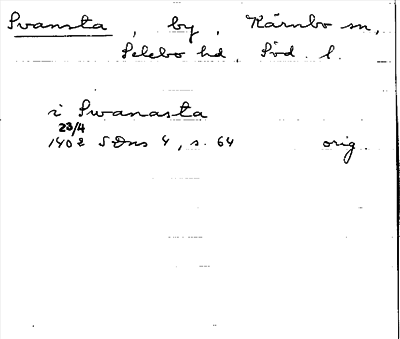 Svansta, by, Kärnbo sn,
Selebo hd, Söd. l.
i Swanasta
23/4
1402 SDns 4, s. 64 orig.